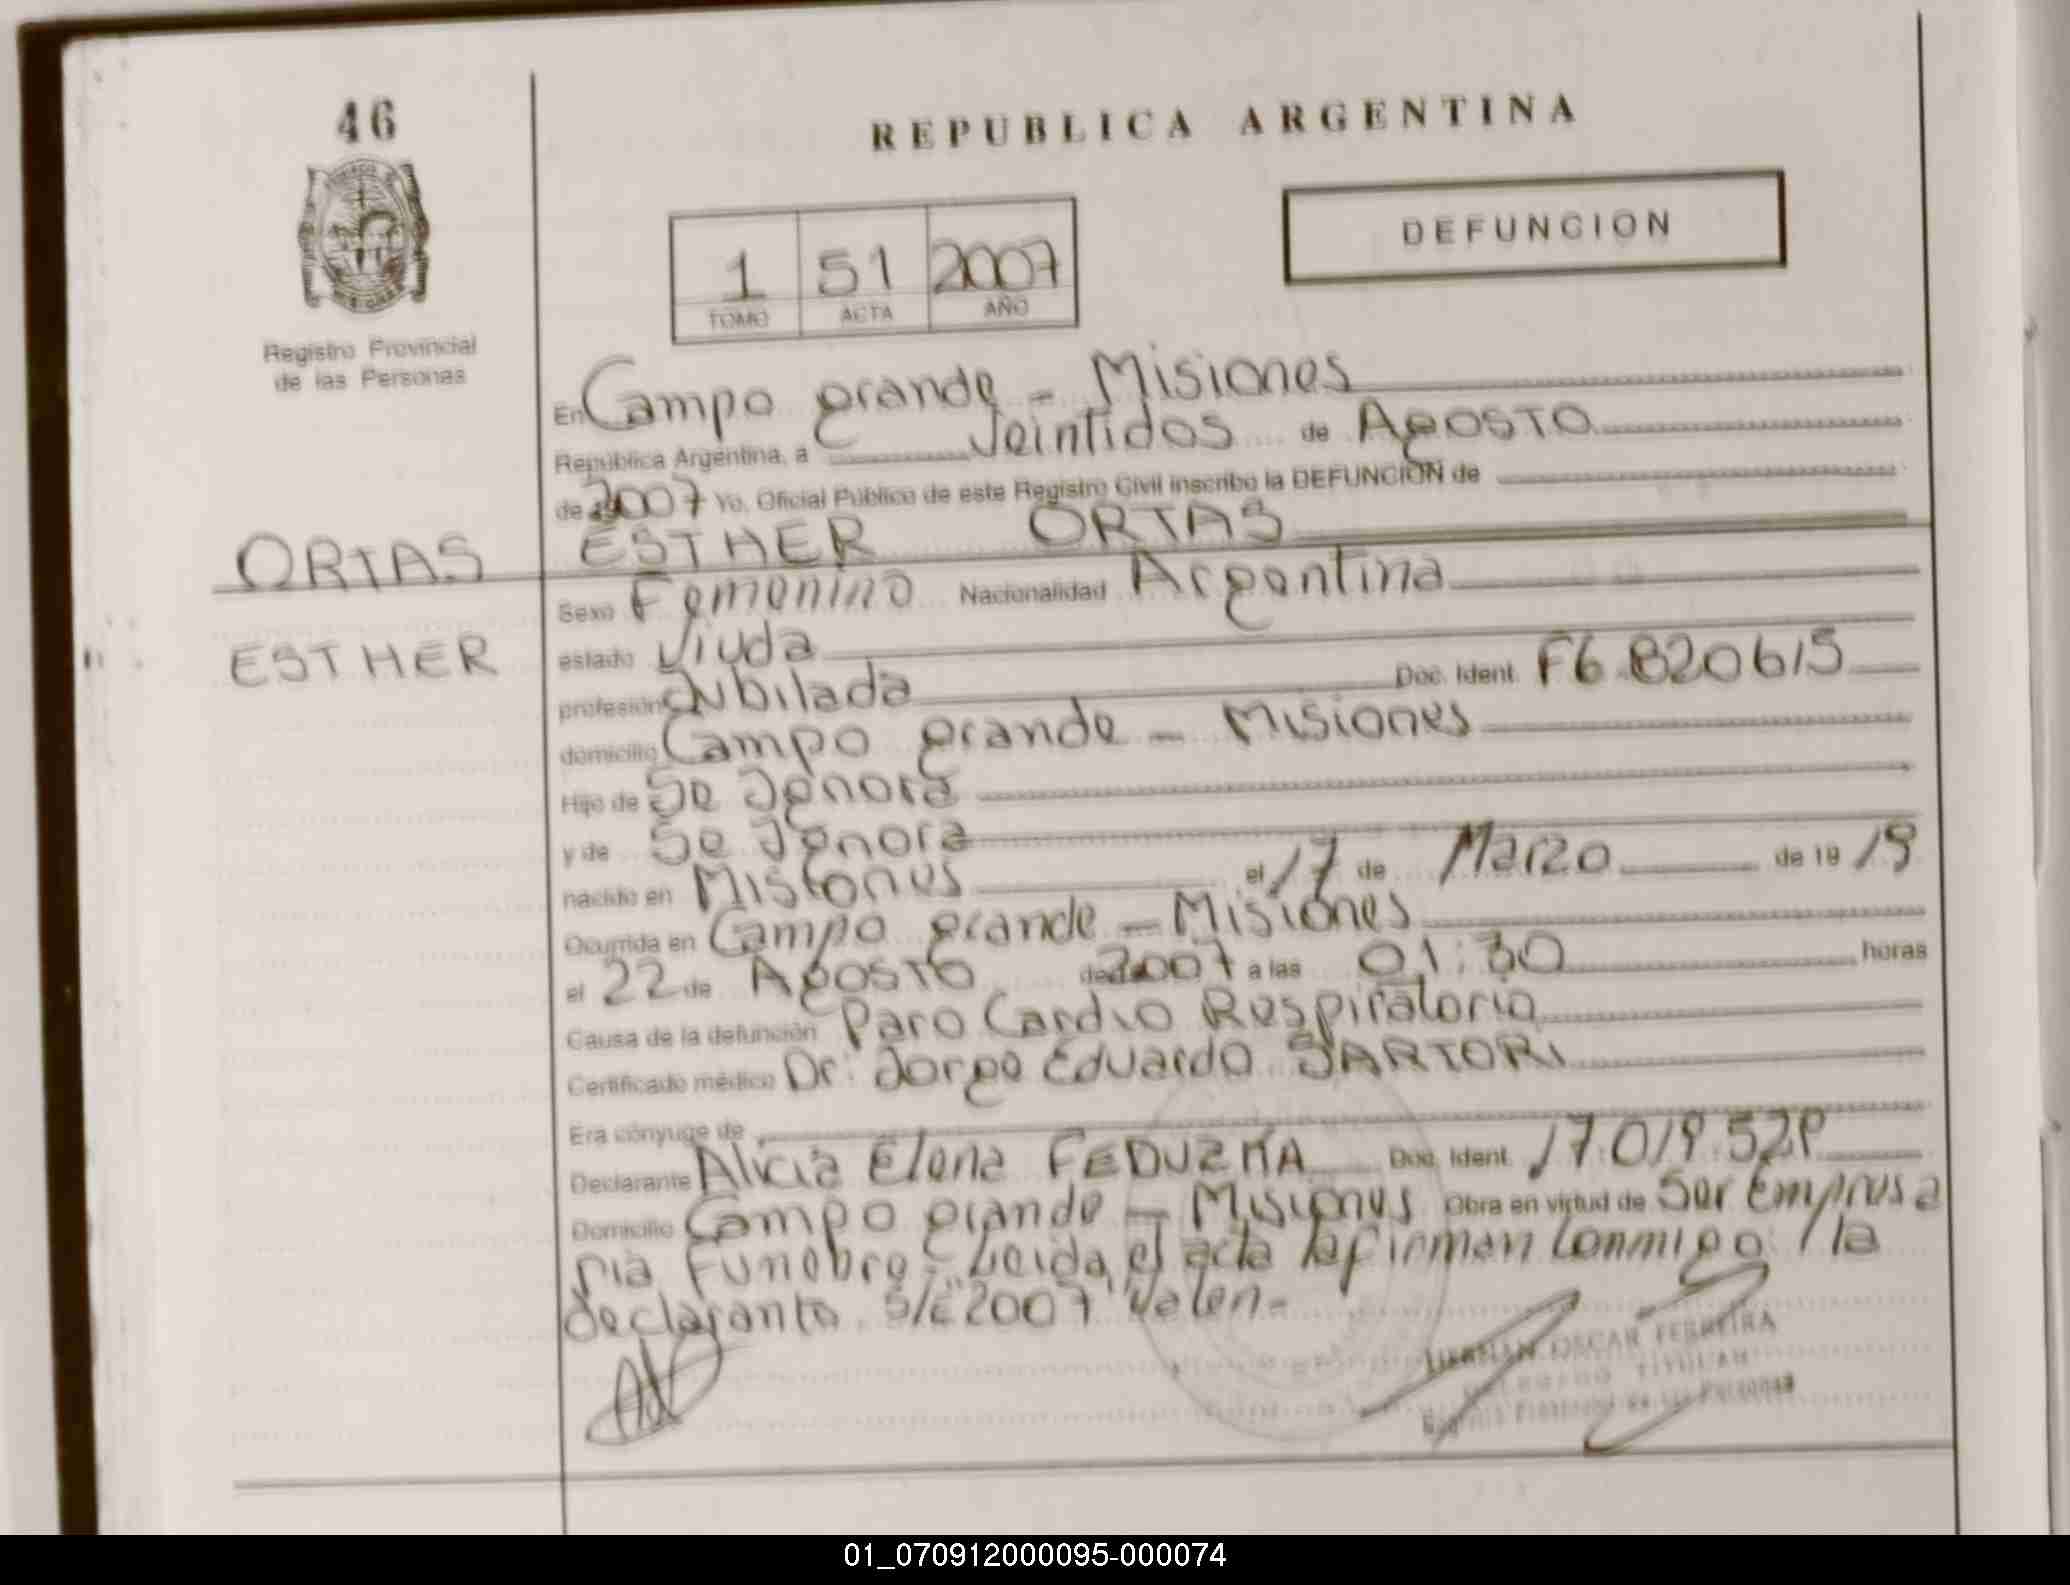 46
REPUBLICA ARGENTINA
DEFUNCION
1 51 2007
TOMO ACTA AÑO
Registro Provincial
de las Personas
En Campo grande - Misiones
República Argentina, a Veintidos de Agosto
de 2007 Yo, Oficial Público de este Registro Civil inscribo la DEFUNCION de
ORTAS ESTHER ORTAS
Sexo Femenino Nacionalidad Argentina
ESTHER estado Viuda
profesión Jubilada Doc. Ident. F6.820615
domicilio Campo grande - Misiones
Hijo de Se Ignora
y de Se Ignora
nacido en Misiones el 17 de Marzo de 19 19
Ocurrida en Campo grande - Misiones
el 22 de Agosto de 2007 a las 01:30 horas
Causa de la defunción Paro Cardio Respiratorio
Certificado médico Dr: Jorge Eduardo SARTORI
Era cónyuge de
Declarante Alicia Elena Doc. Ident. 17.019.529
Domicilio Campo grande - Misiones Obra en virtud de Ser Empresa
ria Funebre. Leida el acta la firman Conmigo / la
declarante. S/E "2007" Valen.-
HERNAN OSCAR FERREIRA
DELEGADO TITULAR
Registro Provincial de las Personas
01_070912000095-000074